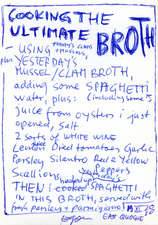 COOKING THE
ULTIMATE BROTH
- USING TODAY'S CLAMS + MUSSELS,
plus YESTERDAY'S
MUSSEL/CLAM BROTH,
adding some SPAGHETTI
water, plus: (including some
JUICE from oysters i just
opened, salt
2 sorts of WHITE WINE
Lemon Dried tomatoes Garlic
Parsley Silantro Red & Yellow
Scallions, Peppers
THEN i cooked SPAGHETTI
IN this BROTH, served with
fresh parsley + parmigiano!
EAST QUOGUE